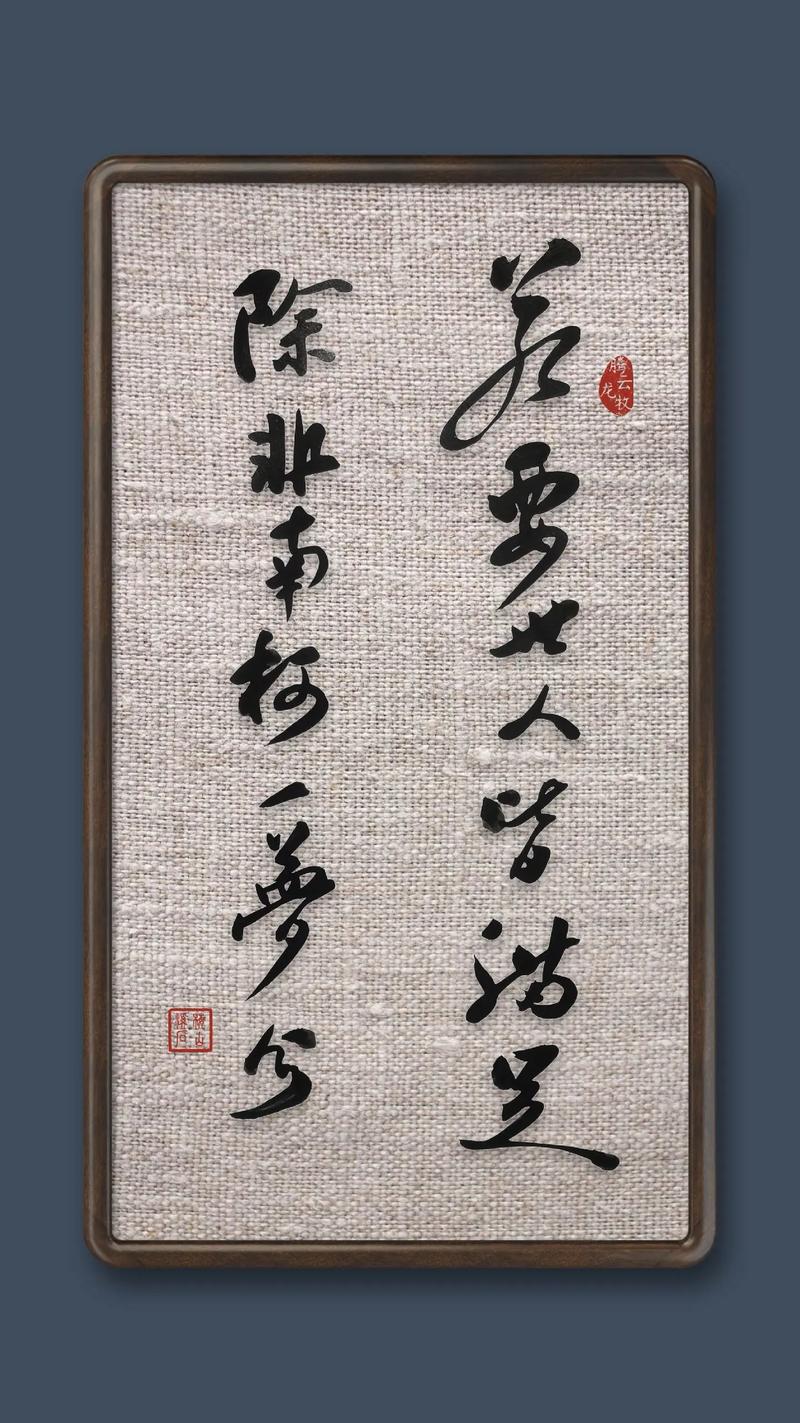 若要世人皆满足
除非南柯一梦兮
腾云牧龙